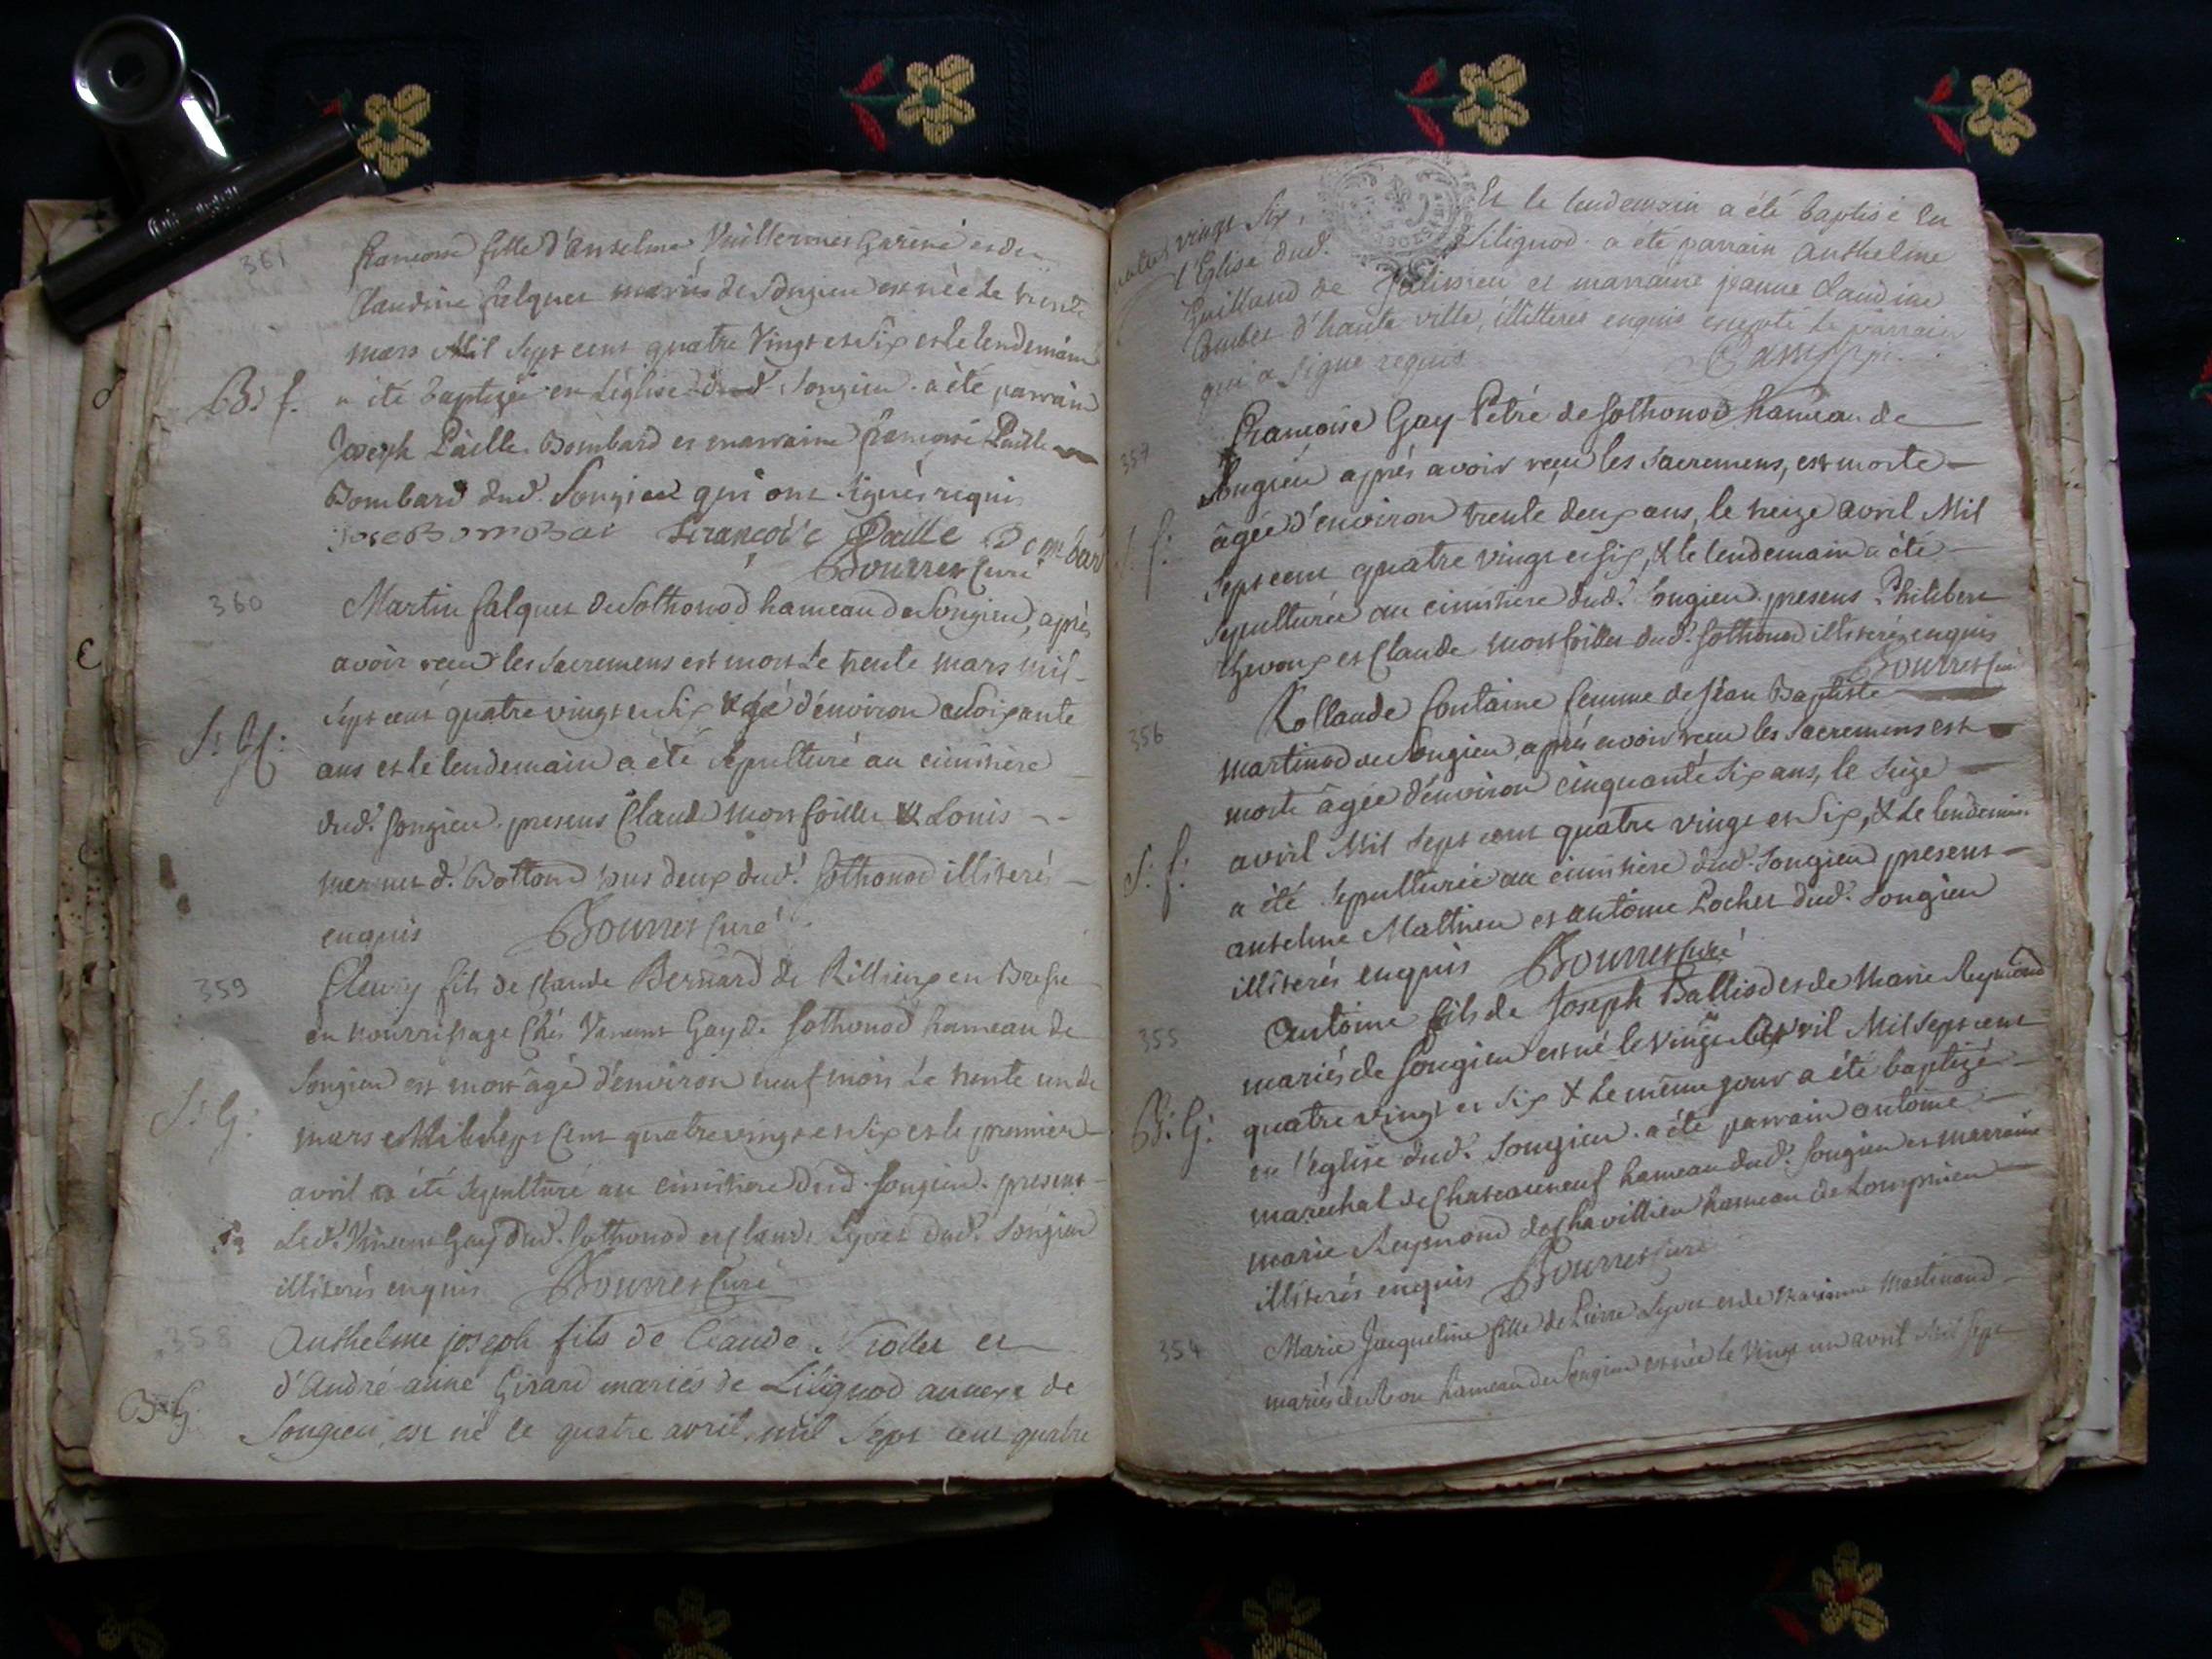 361
françoise fille d'Anselme Vuillermet Gariné et de
Claudine falquet mariés de Songieu est née le trente
mars Mil Sept cent quatre Vingt et Six et le lendemain
B: f.
a été baptizée en l'église dud. Songieu. a été parrain
Joseph Paille Bombard et marraine françoise Paille
Bombard dud. Songieu qui ont signés requis
Françoise Paille Bombard
Bourret Curé
360
Martin falquet de Sothonod hameau de Songieu, après
avoir reçu les Sacremens est mort le trente mars mil
Sept cent quatre vingt et Six âgé d'environ soixante
S: G:
ans et le lendemain a été sepulturé au cimitière
dud. Songieu. presens Claude Montfoiller & Louis
mermet d. Bottom tous deux dud. Sothonod illiterés
enquis Bourret Curé
359
Fleury fils de Claude Bernard de Rillieux en Bresse
en nourrissage chés Vincent Gay de Sothonod hameau de
Songieu est mort âgé d'environ neuf mois le trente un de
S: G:
mars Mil Sept Cent quatre vingt et Six et le premier
avril a été Sepulturé au cimitiere dud. Songieu. presens
Led. Vincent Gay dud. Sothonod et Claude Lyvet dud. Songieu
illiterés enquis Bourret Curé
358
Anthelme joseph fils de Claude Nicollet et
d'André anne Girard mariés de Lilignod annexe de
B: G:
Songieu, est né le quatre avril, mil Sept cent quatre
vingt Six, Et le lendemain a été baptisé en
l'Eglise dud. Lilignod. a été parrain Anthelme
Guilland de Talissieu et marraine jeanne Claudine
Combet d'haute ville, illitterés enquis excepté le parrain
qui a signé requis
357
françoise Gay Petré de Sothonod hameau de
Songieu aprés avoir reçu les Sacremens, est morte
âgée d'environ trente deux ans, le treize avril Mil
S: f:
Sept cent quatre vingt et six, & le lendemain a été
sepulturée au cimitière dud. Songieu. presens Philibert
thevoux et Claude Montfoiller dud. Sothonod illiterés enquis
Bourret Curé
356
Rollande fontaine femme de Jean Baptiste
martinod de Songieu, aprés avoir reçu les Sacremens est
morte âgée d'environ cinquante six ans, le Seize
S: f:
avril Mil Sept cent quatre vingt et Six, & le lendemain
a été Sepulturée au cimitière dud. Songieu presens
anselme Mathieu et antoine Pochet dud. Songieu
illiterés enquis Bourret Curé
355
Antoine fils de Joseph Balliod et de Marie Reymond
mariés de Songieu est né le Vingt Avril Mil Sept cent
B: G:
quatre vingt et Six & le même jour a été baptizé
en l'eglise dud. Songieu. a été parrain antoine
marechal de Chateauneuf hameau dud. Songieu et marraine
marie Reymond de Chavillieu hameau de Lompnieu
illiterés enquis Bourret Curé
354
Marie Jacqueline fille de Pierre Lyvet et de Marianne Martinand
mariés de Bon hameau de Songieu est née le Vingt un avril Mil Sept